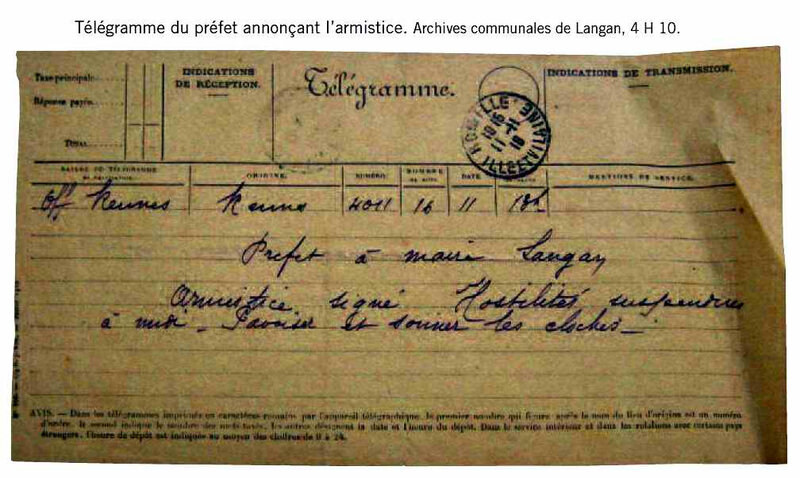 Télégramme du préfet annonçant l'armistice. Archives communales de Langan, 4 H 10.
Taxe principale
Réponse payée
TOTAL
INDICATIONS
DE RÉCEPTION.
Télégramme.
INDICATIONS DE TRANSMISSION.
ROMILLE
11 11
18
ILLE ET VILAINE
NATURE DU TÉLÉGRAMME
ORIGINE.
NUMÉRO.
NOMBRE
DE MOTS.
DATE
MENTIONS DE SERVICE.
Off Rennes Rennes 4011 16 11 13h
Préfet à maire Langan
Armistice signé Hostilités suspendues
à midi - Pavoiser et sonner les cloches -
AVIS. — Dans les télégrammes imprimés en caractères romains par l'appareil télégraphique, le premier nombre qui figure après le nom du lieu d'origine est un numéro
d'ordre, le second indique le nombre des mots taxés, les autres désignent la date et l'heure du dépôt. Dans le service intérieur et dans les relations avec certains pays
étrangers, l'heure de dépôt est indiquée au moyen des chiffres de 0 à 24.